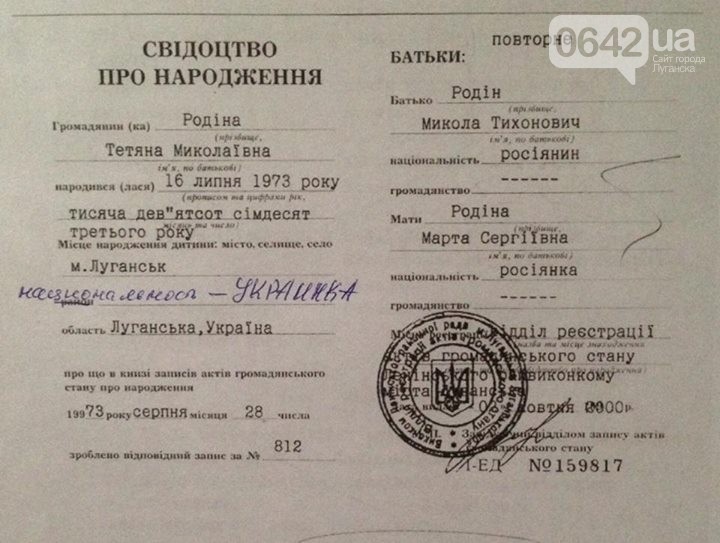 СВІДОЦТВО
ПРО НАРОДЖЕННЯ
Громадянин (ка) Родіна
(прізвище,
Тетяна Миколаївна
ім'я, по батькові)
народився (лася) 16 липня 1973 року
(прописом та цифрами рік,
тисяча дев"ятсот сімдесят
місяць та число)
третього року
Місце народження дитини: місто, селище, село
м.Луганськ
национальность – УКРАИНКА
район
область Луганська,Україна
про що в книзі записів актів громадянського
стану про народження
1973 року серпня місяця 28 числа
зроблено відповідний запис за № 812
повторне
0642.ua
Сайт города
Луганска
БАТЬКИ:
Батько Родін
(прізвище,
Микола Тихонович
ім'я, по батькові)
національність росіянин
громадянство ------
Мати Родіна
(прізвище,
Марта Сергіївна
ім'я, по батькові)
національність росіянка
громадянство ------
відділ реєстрації
громадянського стану
2000р.
відділом запису актів
стану
І-ЕД №159817